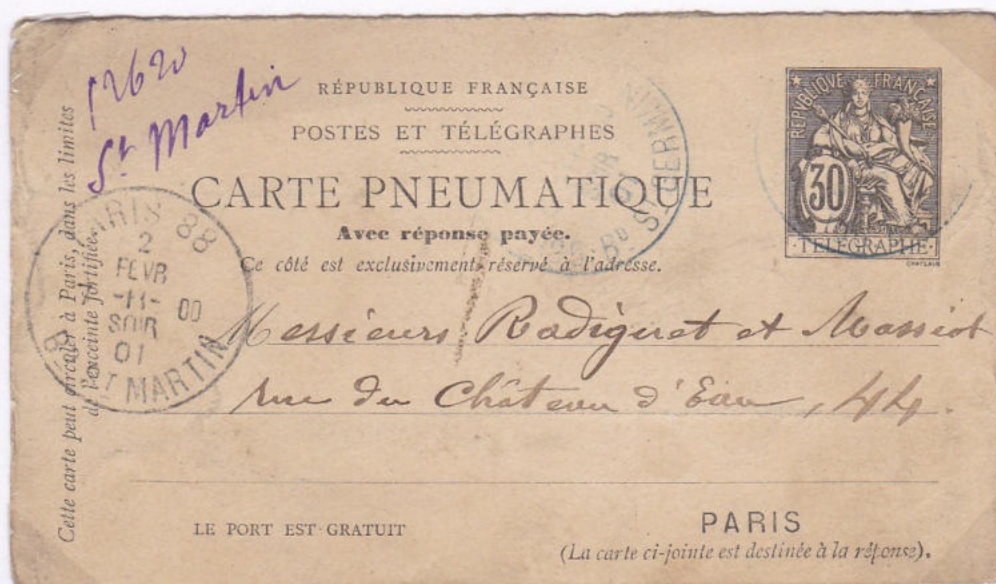 12620
St Martin
RÉPUBLIQUE FRANÇAISE
POSTES ET TÉLÉGRAPHES
CARTE PNEUMATIQUE
Avec réponse payée.
Ce côté est exclusivement réservé à l'adresse.
REPVBLIQVE FRANÇAISE
30
TELEGRAPHE
CHAPLAIN
Bd ST GERMAIN
PARIS 88
2
FEVR
-11- 00
SOIR
01
Bd ST MARTIN
Cette carte peut circuler à Paris, dans les limites
de l'enceinte fortifiée.
Messieurs Radiguet et Massiot
rue du Château d'Eau, 44.
LE PORT EST GRATUIT
PARIS
(La carte ci-jointe est destinée à la réponse).